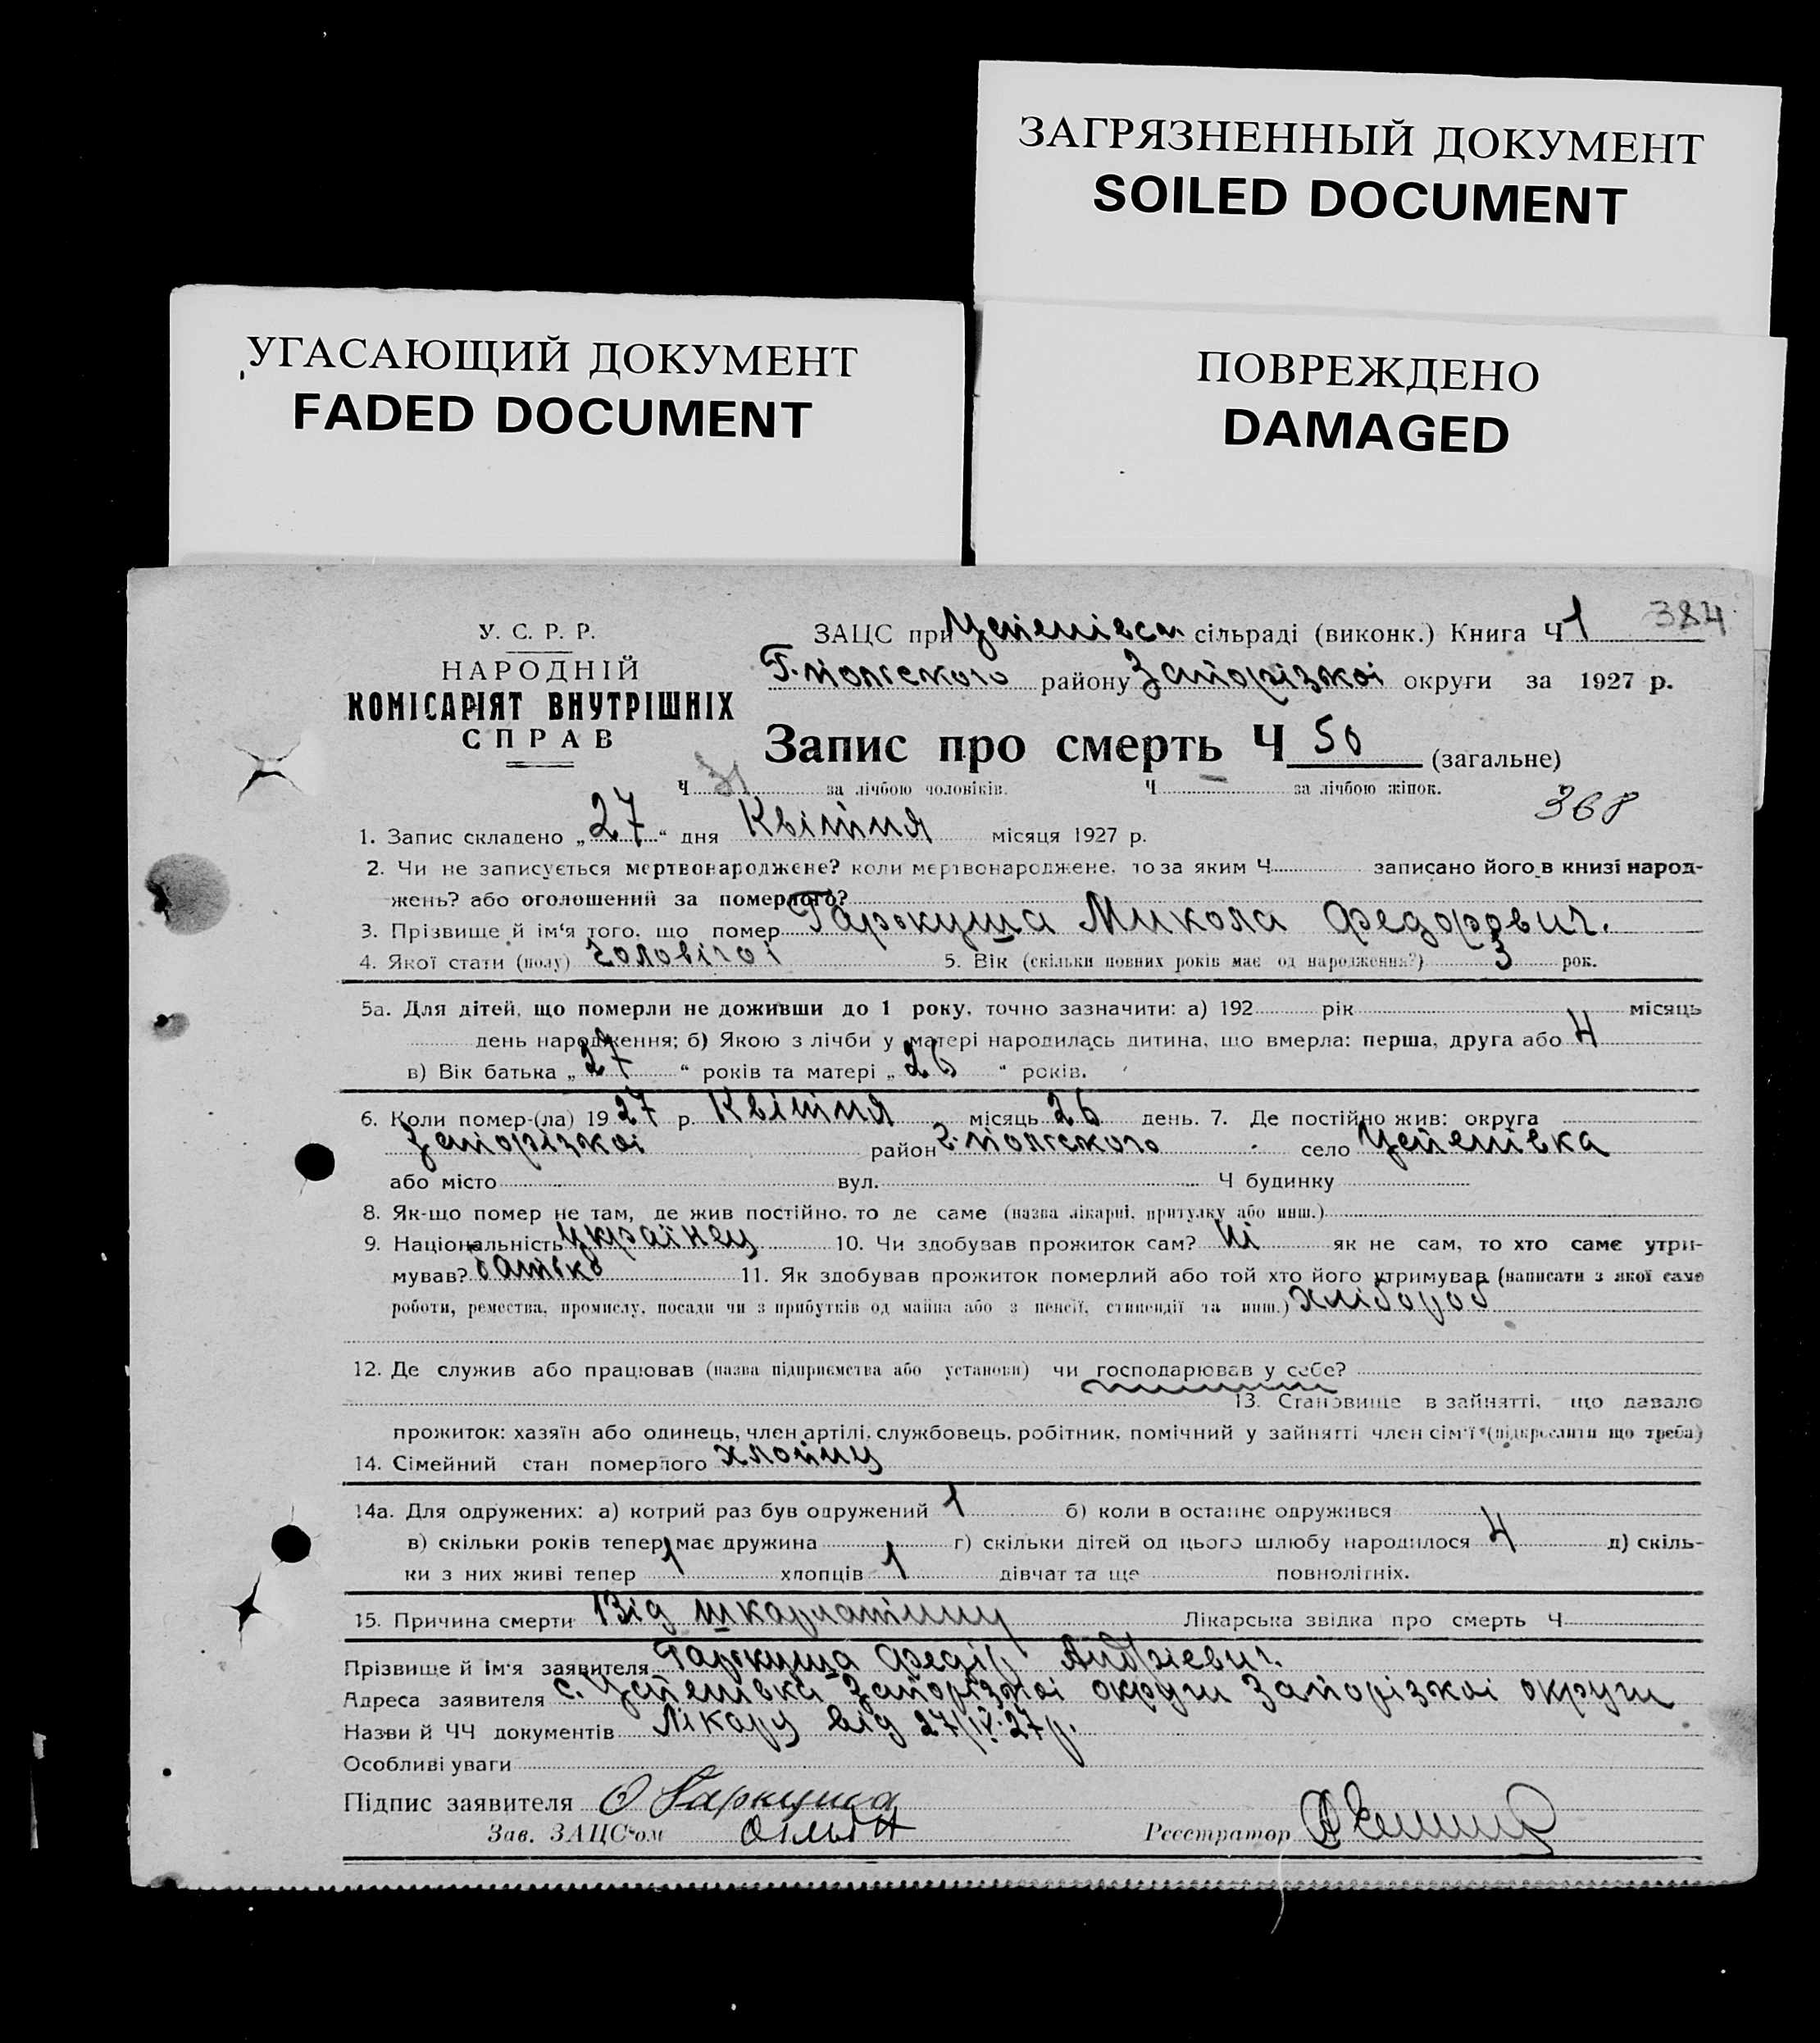 ЗАГРЯЗНЕННЫЙ ДОКУМЕНТ
SOILED DOCUMENT
УГАСАЮЩИЙ ДОКУМЕНТ
FADED DOCUMENT
ПОВРЕЖДЕНО
DAMAGED
384
У. С. Р. Р.
НАРОДНІЙ
КОМІСАРІЯТ ВНУТРІШНІХ
СПРАВ
ЗАЦС при Успенівськ. сільраді (виконк.) Книга Ч 1
Г.-польского району Запорізкоі округи за 1927 р.
Запис про смерть Ч 50 (загальне)
Ч 31 за лічбою чоловіків. Ч — за лічбою жінок.
368
1. Запис складено „27“ дня Квітня місяця 1927 р.
2. Чи не записується мертвонароджене? коли мертвонароджене, то за яким Ч записано його в книзі народ-
жень? або оголошений за померлого?
3. Прізвище й ім'я того, що помер Гаркуша Микола Федорович.
4. Якої стати (полу) Чоловічоі 5. Вік (скільки повних років має од народження?) 3 рок.
5а. Для дітей, що померли не доживши до 1 року, точно зазначити: а) 192 рік місяць
день народження; б) Якою з лічби у матері народилась дитина, що вмерла: перша, друга або 4
в) Вік батька „27“ років та матері „26“ років.
6. Коли помер-(ла) 1927 р. Квітня місяць 26 день. 7. Де постійно жив: округа
Запорізкоі район Г.-польского село Успенівка
або місто вул. Ч будинку
8. Як-що помер не там, де жив постійно, то де саме (назва лікарні, притулку або инш.)
9. Національність Українец 10. Чи здобував прожиток сам? Ні як не сам, то хто саме утри-
мував? батько 11. Як здобував прожиток померлий або той хто його утримував (написати з якої саме
роботи, ремества, промислу, посади чи з прибутків од майна або з пенсії, стипендії та инш.) Хлібороб
12. Де служив або працював (назва підприємства або установи) чи господарював у себе?
13. Становище в зайнятті, що давало
прожиток: хазяїн або одинець, член артілі, службовець, робітник, помічний у зайнятті член сім'ї (підкреслити що треба)
14. Сімейний стан померлого хлопиц
14а. Для одружених: а) котрий раз був одружений 1 б) коли в останнє одружився
в) скільки років тепер має дружина г) скільки дітей од цього шлюбу народилося 4 д) скіль-
ки з них живі тепер 1 хлопців 1 дівчат та ще повнолітніх.
15. Причина смерти Від шкарлатіни Лікарська звідка про смерть Ч
Прізвище й ім'я заявителя Гаркуша Федір Андріевич.
Адреса заявителя с. Успенівка Запорізкоі округи Запорізкоі округи
Назви й ЧЧ документів Лікару від 27/IV-27р.
Особливі уваги
Підпис заявителя Гаркуша
Зав. ЗАЦС'ом
Реєстратор